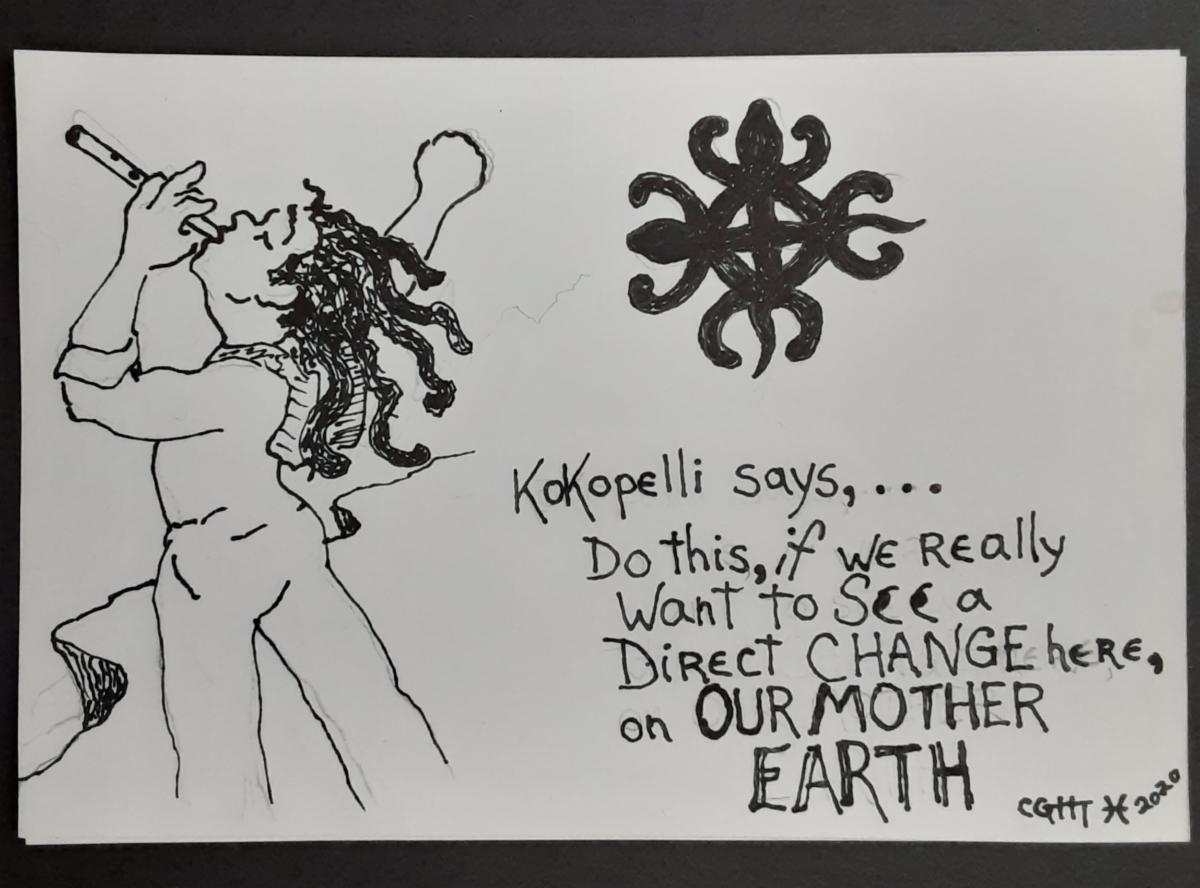 KoKopelli says,...
Do this, if we REally
Want to See a
DiRect CHANGE heRE,
on OUR MOTHER
EARTH
2020